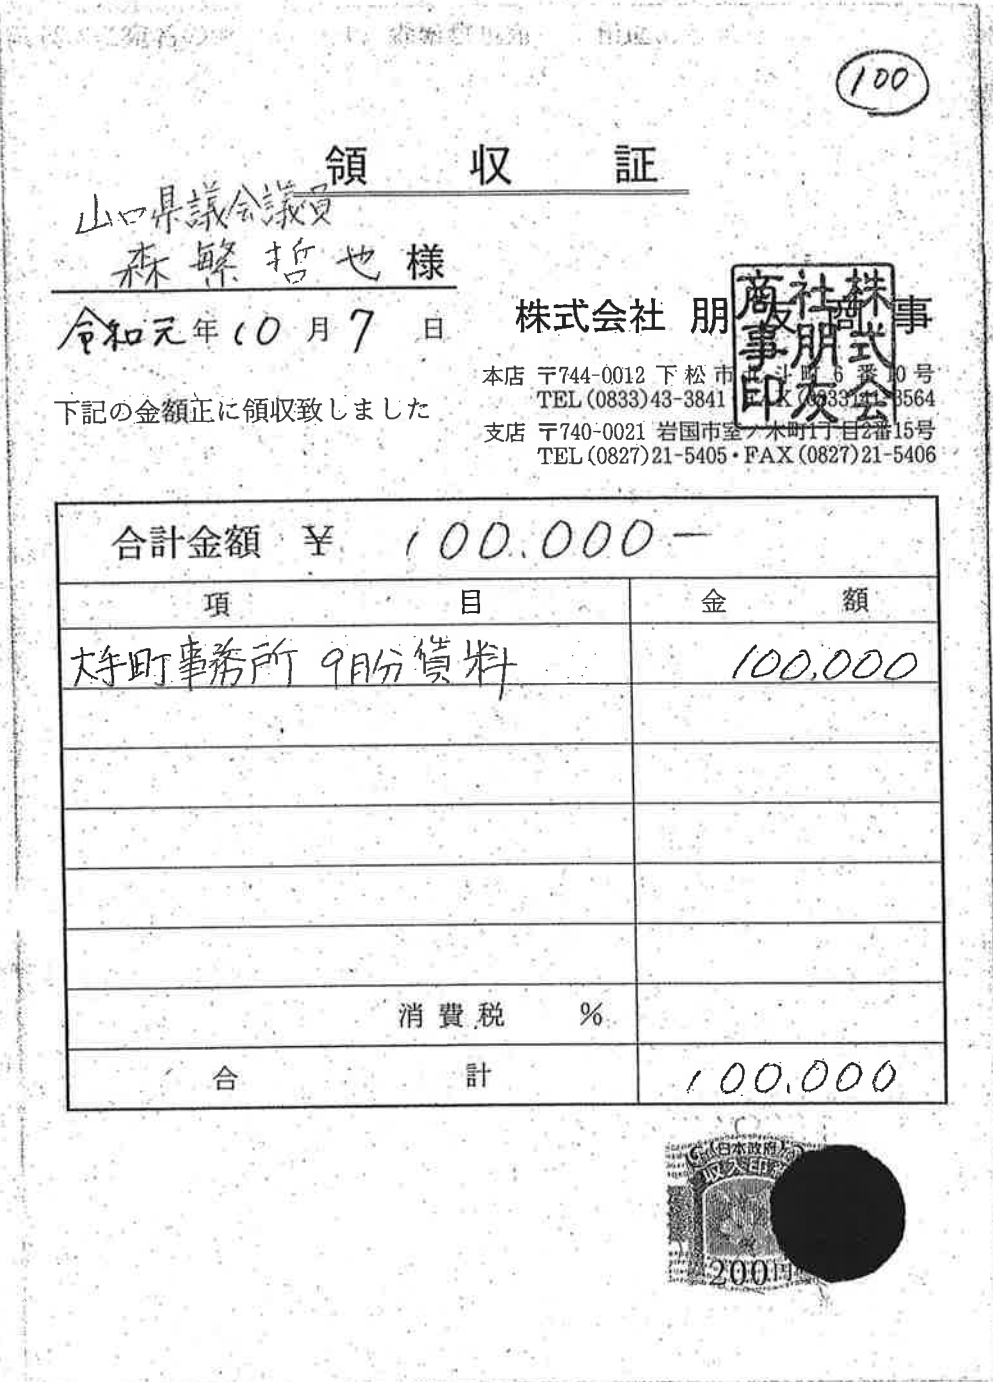 100
領 収 証
山口県議会議員
森繁哲也 様
令和元年10月7日
株式会社 朋友商事
株式会社朋友商事印
本店 〒744-0012 下松市北斗町6番10号
TEL(0833)43-3841
下記の金額正に領収致しました
支店 〒740-0021 岩国市室ノ木町1丁目2番15号
TEL(0827)21-5405・FAX(0827)21-5406
合計金額 ¥ 100.000-
項 目 金 額
大手町事務所 9月分賃料 100,000
消費税 %
合 計 100,000
日本政府
収入印
200円